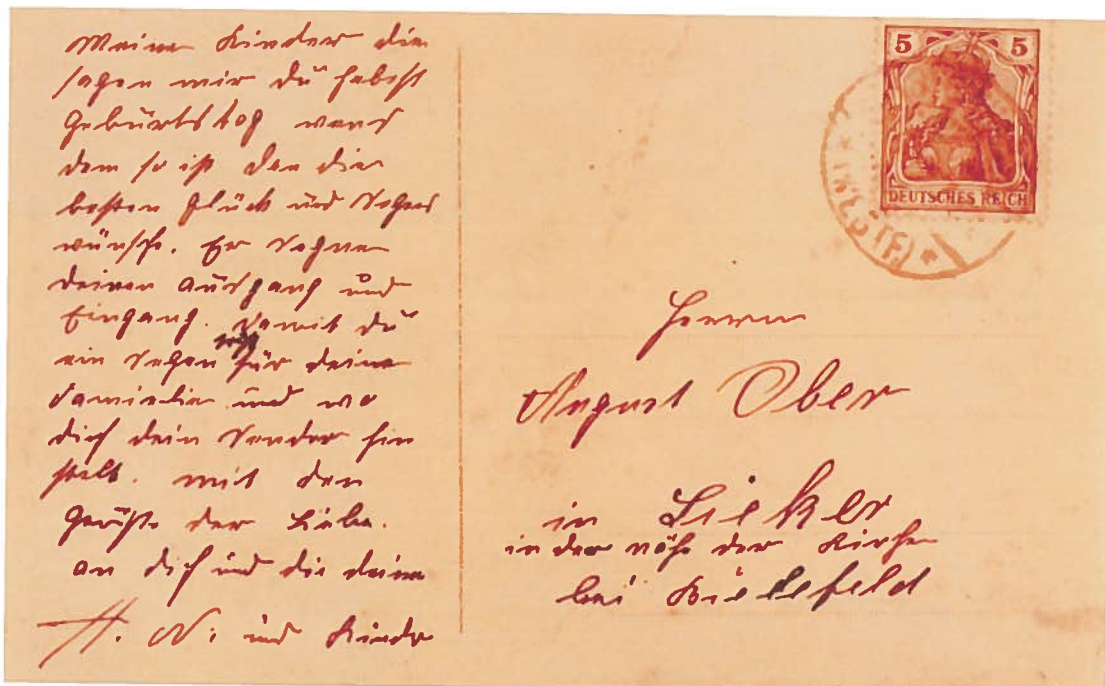 Meine Kinder die
sagen mir du habest
Geburtstag wens
dem so ist den die
besten Glück und Segens
wünsche. Er Segne
deinen Ausgang und
Eingang. Damit du
ein Segen für deine
Familie und wo
dich dein Sender hin
stelt. mit den
Grüße der Liebe.
an dich und die deine
H. N. und Kinder
5 5
DEUTSCHES REICH
(WESTF) *
Herrn
August Ober
in Sieker
in der nähe der Kirche
bei Bielefeld